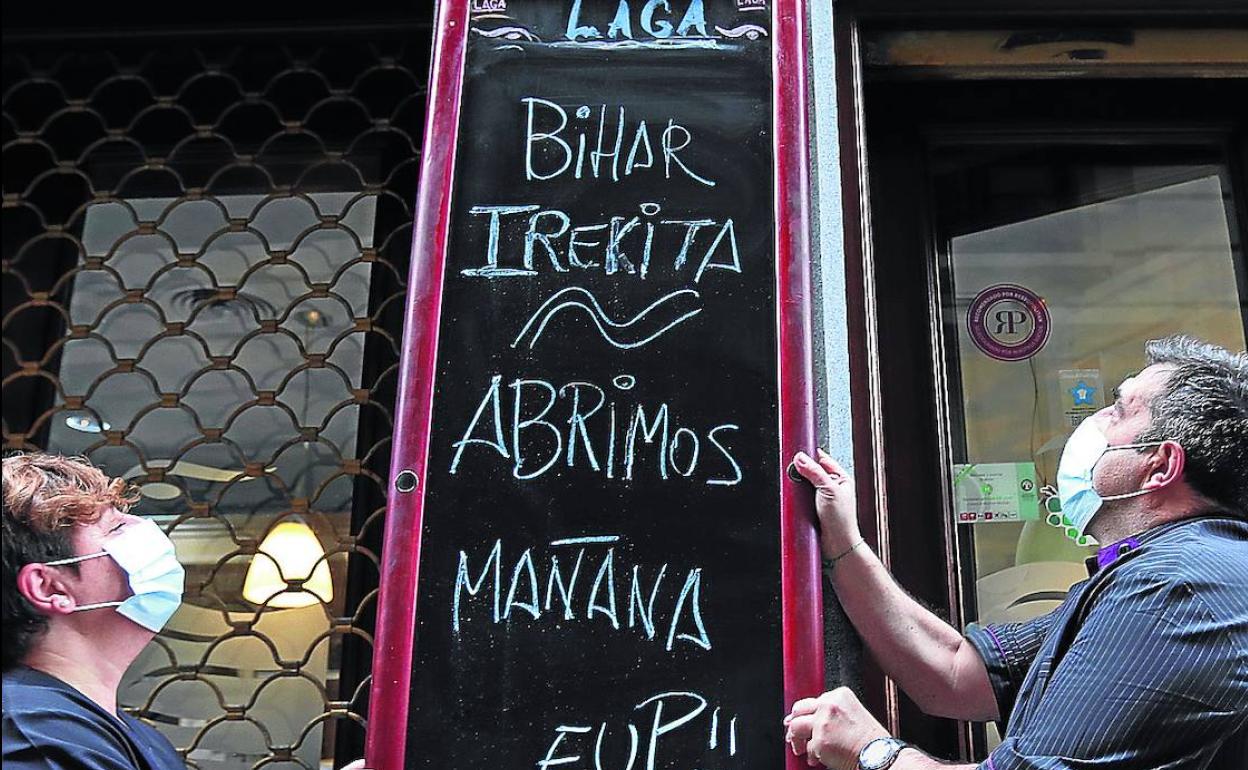 LAGA
LAGA
LAGA
BiHAR
IREKiTA
ABRiMOS
MAÑANA
EUP"
RP